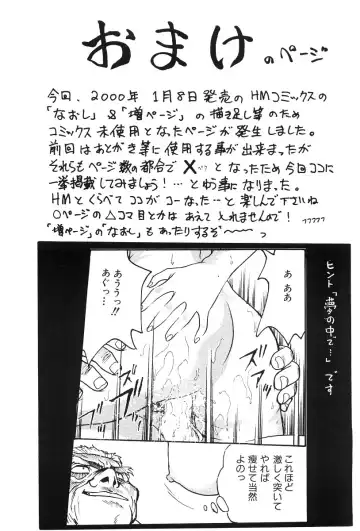 おまけのページ
今回、2000年 1月8日発売の HMコミックスの
「なおし」&「増ページ」の描き足し等のため
コミックス未使用となったページが発生しました。
前回はあとがき等に使用する事が出来ましたが
それらもページ数の都合で ✕…? となったため今回ココに
一挙掲載してみましょう!…とゆう事になりました。
HMとくらべて ココが コーなった…と 楽しんで下さいね
○ページの△コマ目とかは あえて とれませんので!
「増ページ」の「なおし」も あったりするぞ〜〜っ
ヒント「夢の中で…」です
あ ああ
あううっ!!
あぐっ…
これほど
激しく突いて
やれば
痩せて当然
よのっ